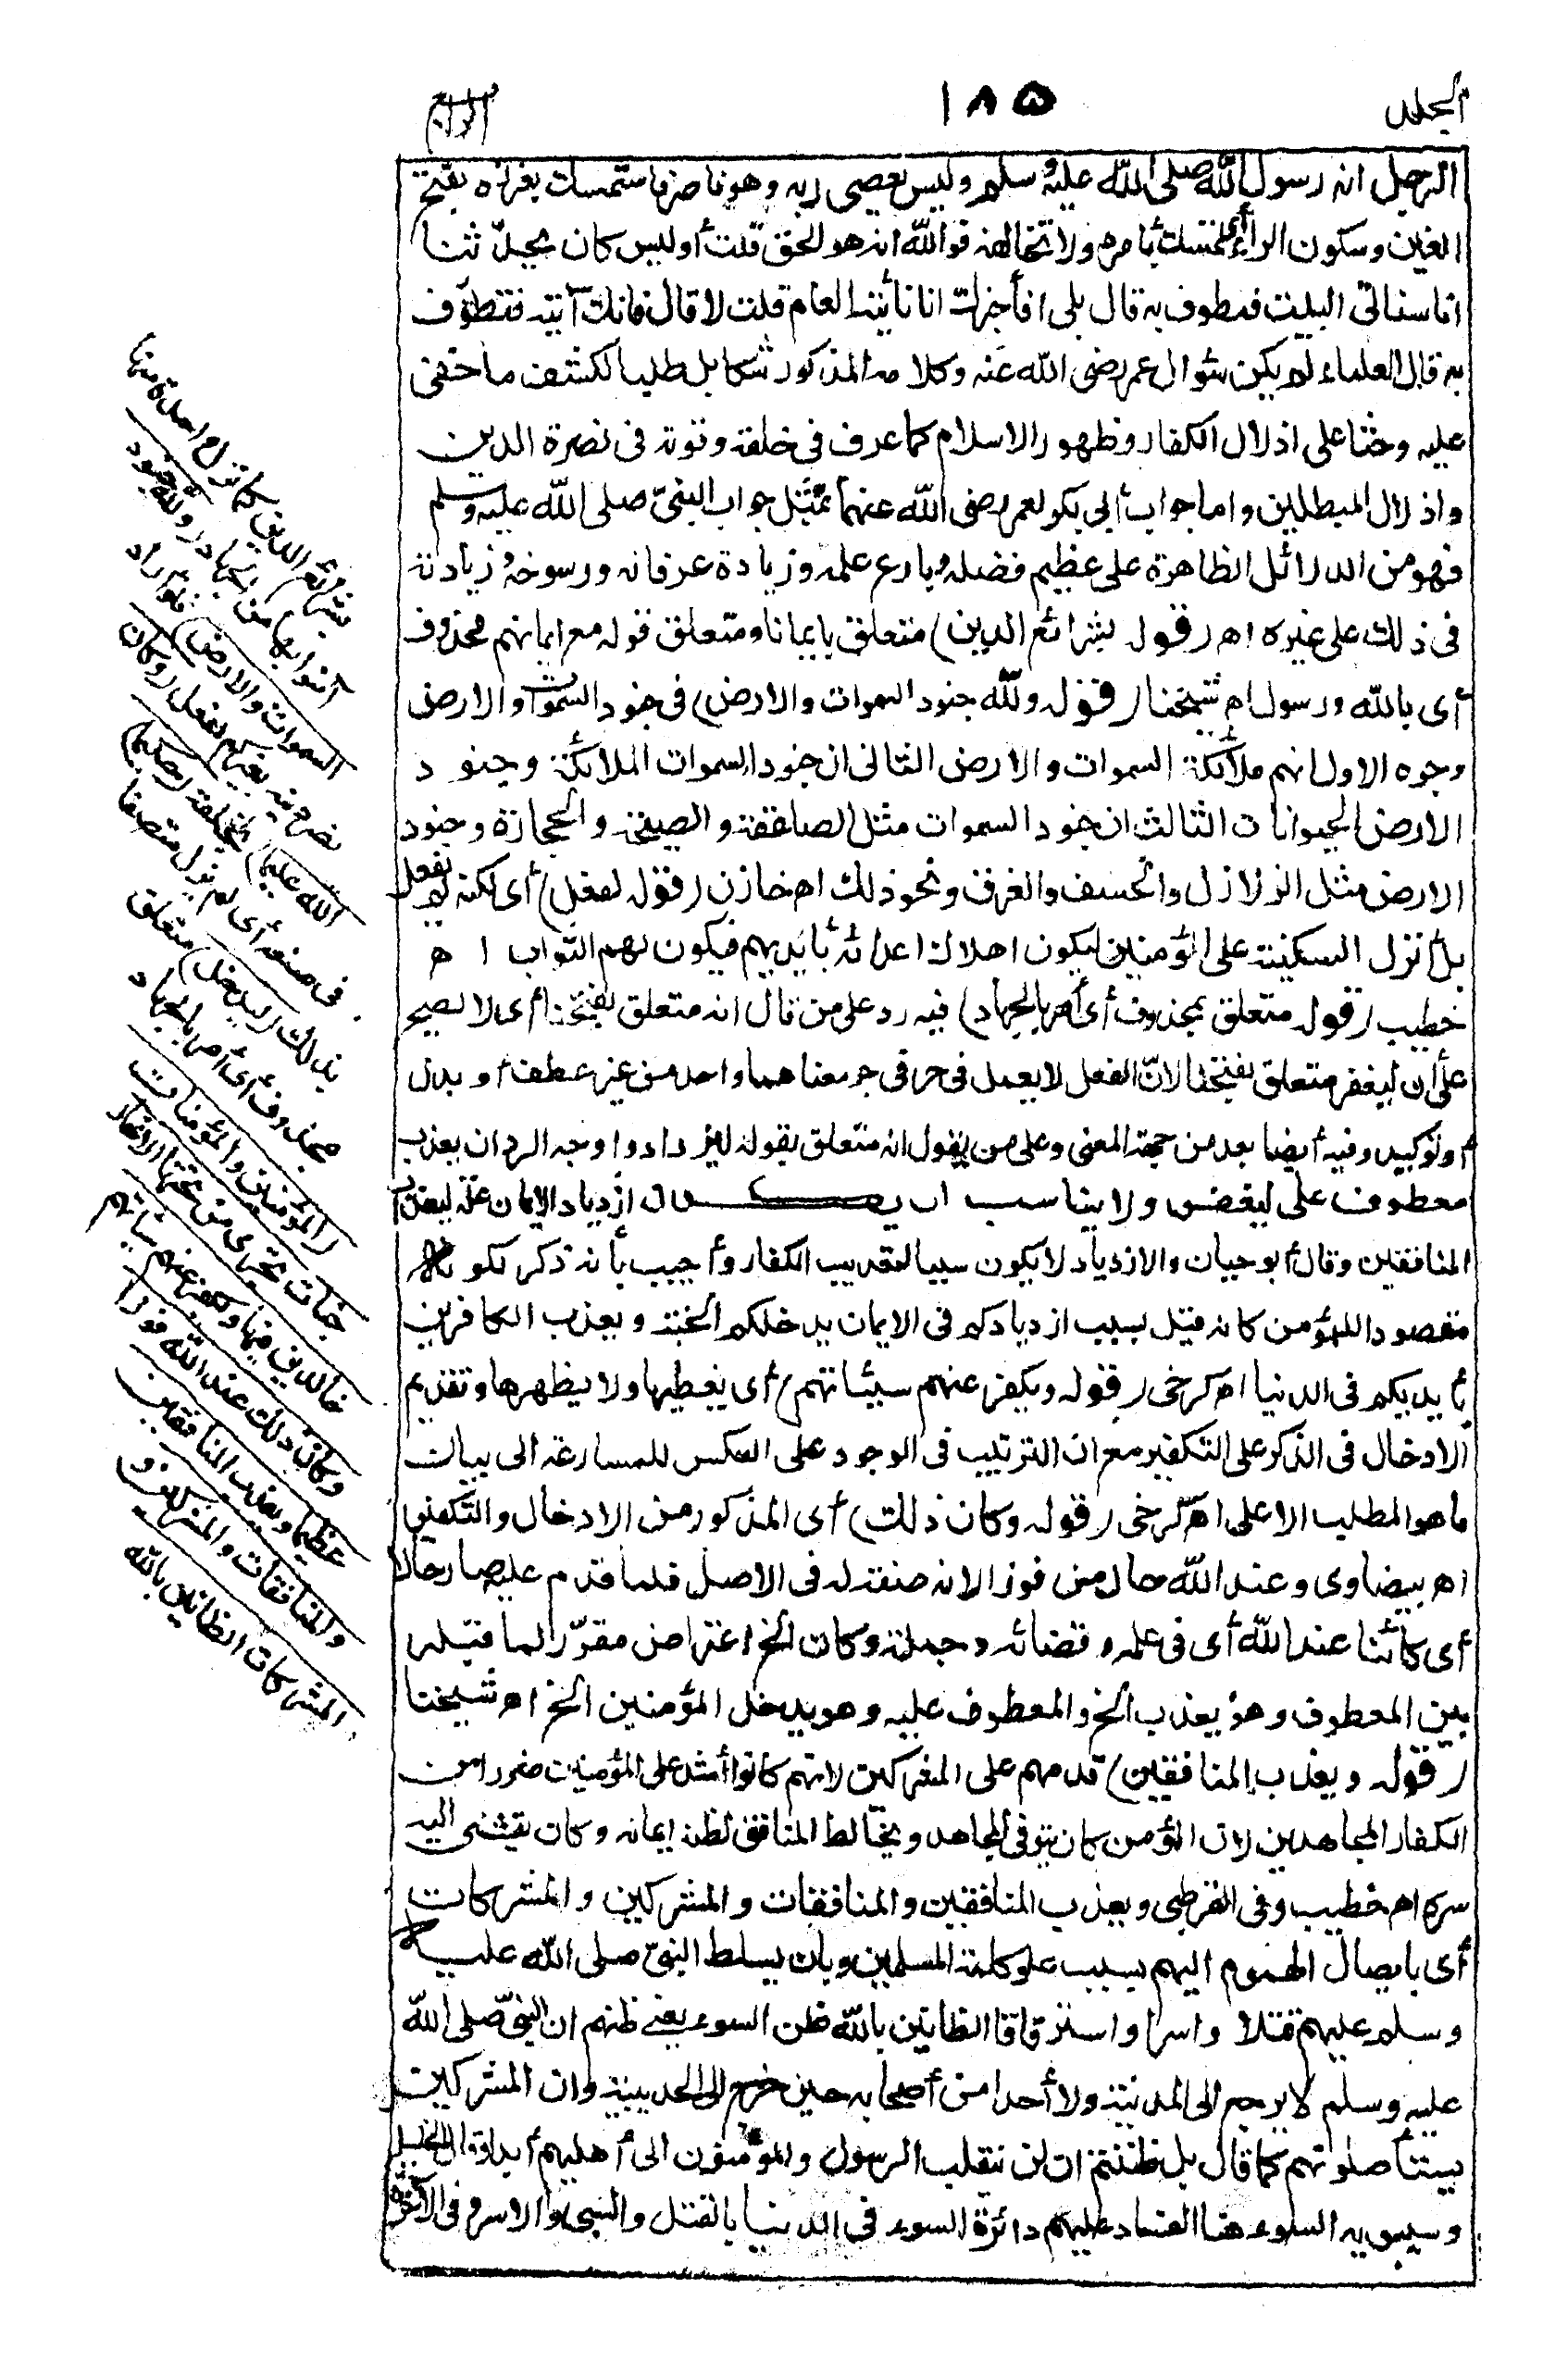 المجلد ١٨٥ الرابع
الرجل انه رسول الله صلى الله عليه وسلم وليس يعصى ربه وهو ناصره فاستمسك بغرزه بفتح
الغين وسكون الراء أى تمسك بأمره ولا تخالفه فوالله انه هو الحق قلت أوليس كان يحدّثنا
انا سنأتى البيت فنطوف به قال بلى افأخبرك انا نأتيه العام قلت لا قال فانك آتيه فتطوّف
به قال العلماء لم يكن سؤال عمر رضى الله عنه وكلامه المذكور شكا بل طلبا لكشف ما خفى
عليه وحثا على اذلال الكفار وظهور الاسلام كما عرف فى خلقه وقوته فى نصرة الدين
واذلال المبطلين واما جواب أبى بكر لعمر رضى الله عنهما بمثل جواب النبىّ صلى الله عليه وسلم
فهو من الدلائل الظاهرة على عظيم فضله وبارع علمه وزيادة عرفانه ورسوخه وزيادته
فى ذلك على غيره اه (قوله بشرائع الدين) متعلق بايمانا ومتعلق قوله مع ايمانهم محذوف
أى بالله ورسوله اه شيخنا (قوله ولله جنود السموات والارض) فى جنود السموات والارض
وجوه الاول انهم ملائكة السموات والارض الثانى ان جنود السموات الملائكة وجنود
الارض الحيوانات الثالث ان جنود السموات مثل الصاعقة والصيحة والحجارة وجنود
الارض مثل الزلازل والخسف والغرق ونحو ذلك اه خازن (قوله لفعل) أى لكنه لم يفعل
بل أنزل السكينة على المؤمنين ليكون اهلاك اعدائه بأيديهم فيكون لهم الثواب اه
خطيب (قوله متعلق بمحذوف أى أمر بالجهاد) فيه رد على من قال انه متعلق بفتحنا أى لا يصح
على أن ليغفر متعلق بفتحنا لانّ الفعل لا يعمل فى حرفى جر معناهما واحد من غير عطف أو بدل
أو توكيد وفيه أيضا بعد من جهة المعنى وعلى من يقول انه متعلق بقوله ليزدادوا وجه الرد ان يعذب
معطوف على ليغفر ولا يناسب ان يقال ازدياد الايمان علة ليعذب
المنافقين وقال أبو حيان والازدياد لا يكون سببا لتعذيب الكفار وأجيب بأنه ذكر لكونه
مقصودا للمؤمن كانه قيل بسبب ازديادكم فى الايمان يدخلكم الجنة ويعذب الكافرين
بأيديكم فى الدنيا اه كرخى (قوله ويكفر عنهم سيئاتهم) أى يغطيها ولا يظهرها وتقديم
الادخال فى الذكر على التكفير مع ان الترتيب فى الوجود على العكس للمسارعة الى بيان
ما هو المطلب الاعلى اه كرخى (قوله وكان ذلك) أى المذكور من الادخال والتكفير
اه بيضاوى وعند الله حال من فوزا لانه صفة له فى الاصل فلما قدم عليه صار حالا
أى كائنا عند الله أى فى علمه وقضائه وجملة وكان الخ اعتراض مقرّر لما قبله
بين المعطوف وهو يعذب الخ والمعطوف عليه وهو يدخل المؤمنين الخ اه شيخنا
(قوله ويعذب المنافقين) قدمهم على المشركين لانهم كانوا أشد على المؤمنين ضررا من
الكفار المجاهدين لان المؤمن كان يتوقى المجاهد ويخالط المنافق لظنه ايمانه وكان يفشى اليه
سره اه خطيب وفى القرطبى ويعذب المنافقين والمنافقات والمشركين والمشركات
أى بايصال الهموم اليهم بسبب علو كلمة المسلمين وبان يسلط النبىّ صلى الله عليه
وسلم عليهم قتلا واسرا واسترقاقا الظانين بالله ظن السوء يعنى ظنهم ان النبىّ صلى الله
عليه وسلم لا يرجع الى المدينة ولا أحدا من أصحابه حين خرج الى الحديبية وان المشركين
يستأصلونهم كما قال بل ظننتم ان لن ينقلب الرسول والمؤمنون الى أهليهم أبدا وقال الخليل
وسيبويه السوء هنا الفساد عليهم دائرة السوء فى الدنيا بالقتل والسبى والاسر وفى الآخرة
بشرائع الدين كلما نزل واحدة منها
آمنوا بها منها الجهاد (ولله جنود
السموات والارض) فلو أراد
نصر دينه بغيركم لفعل (وكان
الله عليما) بخلقه (حكيما)
فى صنعه أى لم يزل متصفا
بذلك (ليدخل) متعلق
بمحذوف أى أمر بالجهاد
(المؤمنين والمؤمنات
جنات تجرى من تحتها الانهار
خالدين فيها ويكفر عنهم سيئاتهم
وكان ذلك عند الله فوزا
عظيما ويعذب المنافقين
والمنافقات والمشركين و
المشركات الظانين بالله